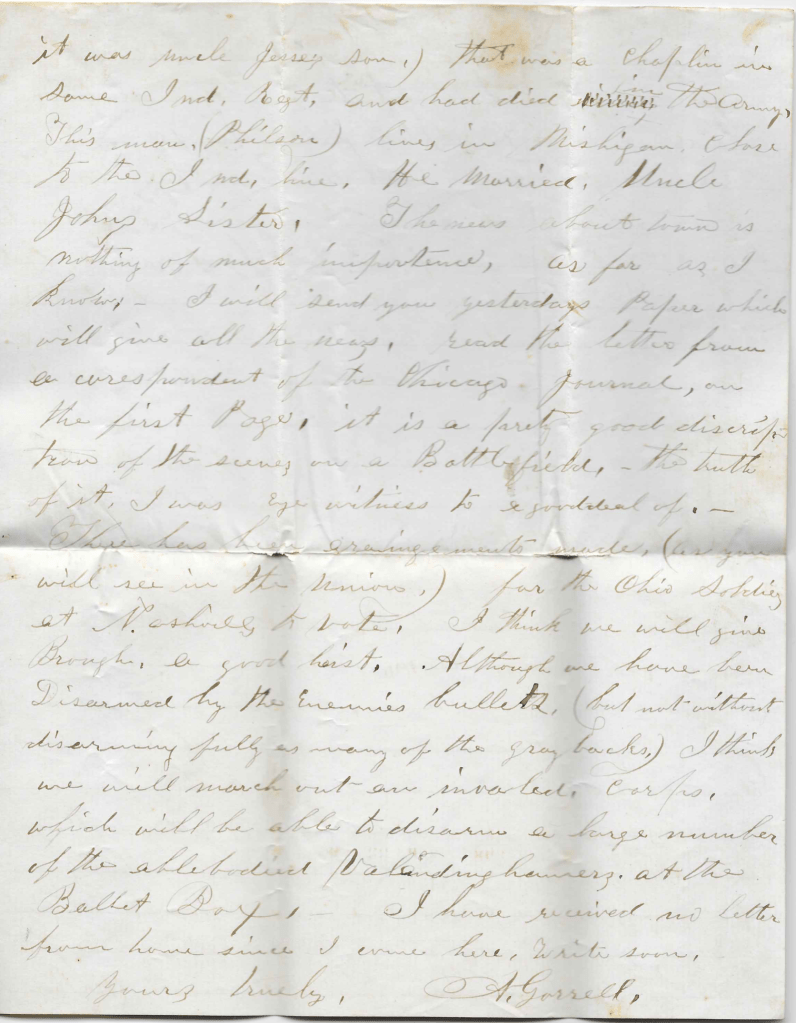 it was uncle Jesseys son,) that was a Chaplin in
some Ind, Regt, and had died in the Army,
This man, (Philson) lives in Mishigan close
to the Ind, line, He Married, Uncle
Johns Sister, The news about town is
nothing of much importence, as far as I
know, - I will send you yesterdays Paper which
will give all the news, read the letter from
a corespondent of the Chicago Journal, on
the first Page, it is a prety good discrip-
tion of the scenes on a Battlefield, - the truth
of it, I was eye witness to a good deal of, -
Thier has been arraingements made, (as you
will see in the Union,) for the Ohio Soldiers
at Nashville to vote, I think we will give
Brough, a good hist, Although we have been
Disarmed by the Enemies bullets, (but not without
disarming fully as many of the gray backs,) I think
we will march out an invaled, Corps,
which will be able to disarm a large number
of the ablebodied Valandinghamers, at the
Ballet Box, - I have received no letter
from home since I come here, Write soon,
Yours truely, A. Gorrell,